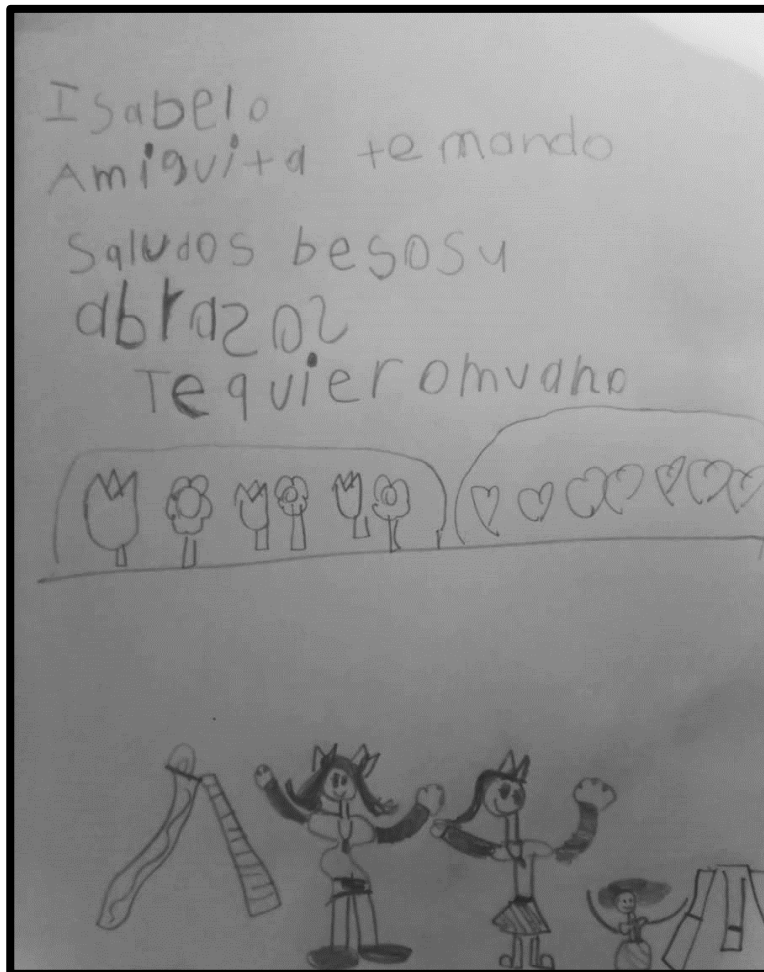 Isabelo
Amiguita te mando
saludos besosy
abrasos
Tequieromuaho